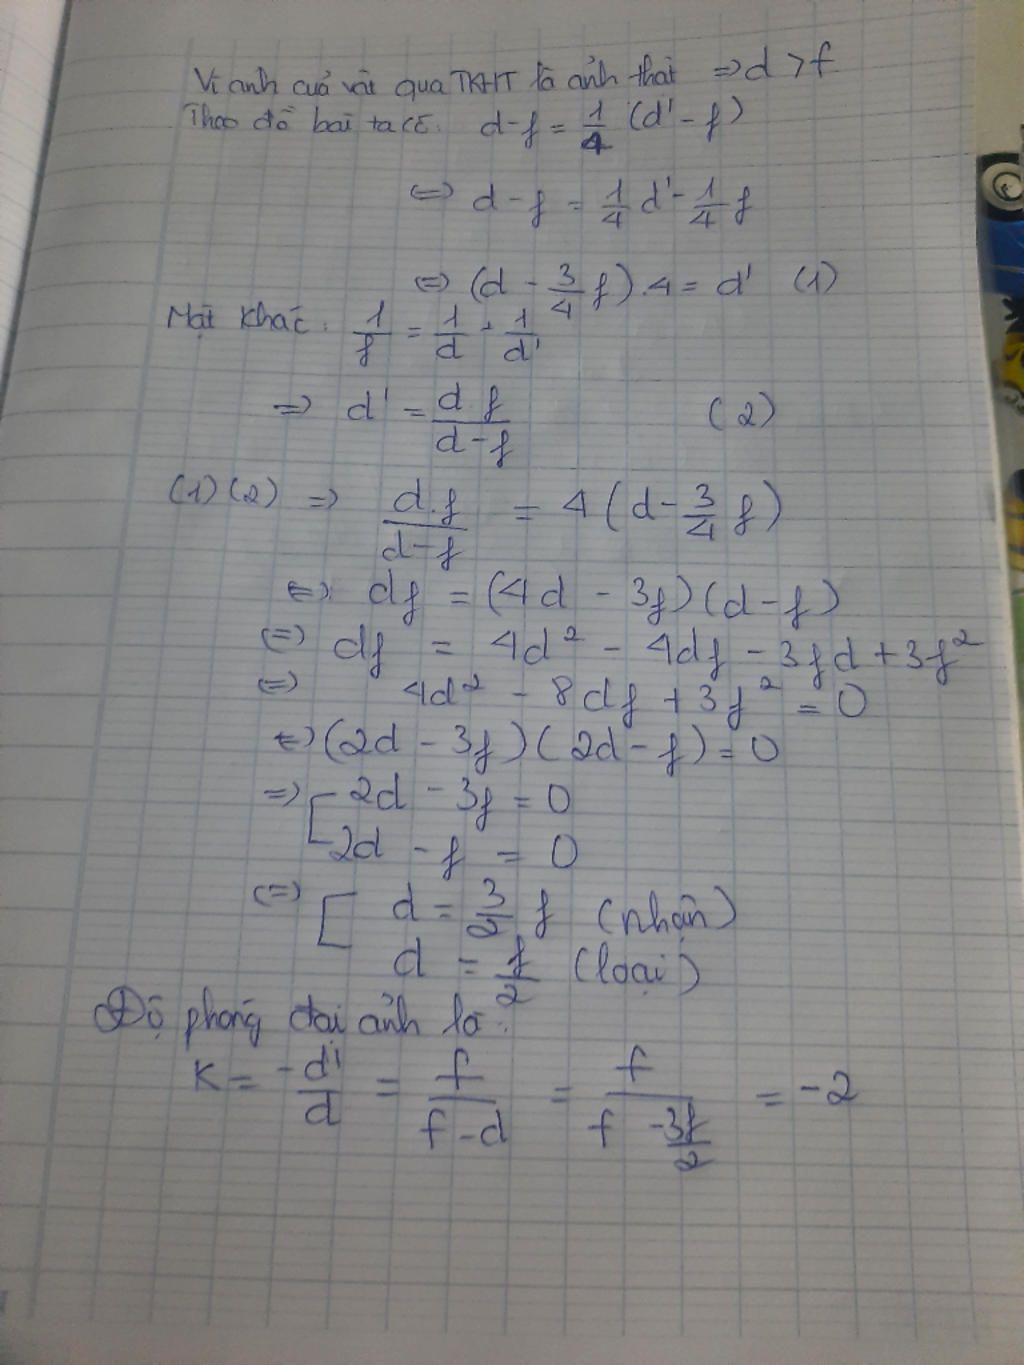 Vì ảnh cuả vật qua TKHT là ảnh thật => d > f
Theo đề bài ta có: d - f = 1/4 (d' - f)
<=> d - f = 1/4 d' - 1/4 f
<=> (d - 3/4 f).4 = d' (1)
Mặt khác: 1/f = 1/d + 1/d'
=> d' = d f/(d - f) (2)
(1)(2) => d.f/(d - f) = 4(d - 3/4 f)
<=> df = (4d - 3f)(d - f)
<=> df = 4d² - 4df - 3fd + 3f²
<=> 4d² - 8df + 3f² = 0
<=> (2d - 3f)(2d - f) = 0
=> [ 2d - 3f = 0
2d - f = 0
<=> [ d = 3/2 f (nhận)
d = f/2 (loại)
Độ phóng đại ảnh là:
K = -d'/d = f/(f - d) = f/(f - 3f/2) = -2